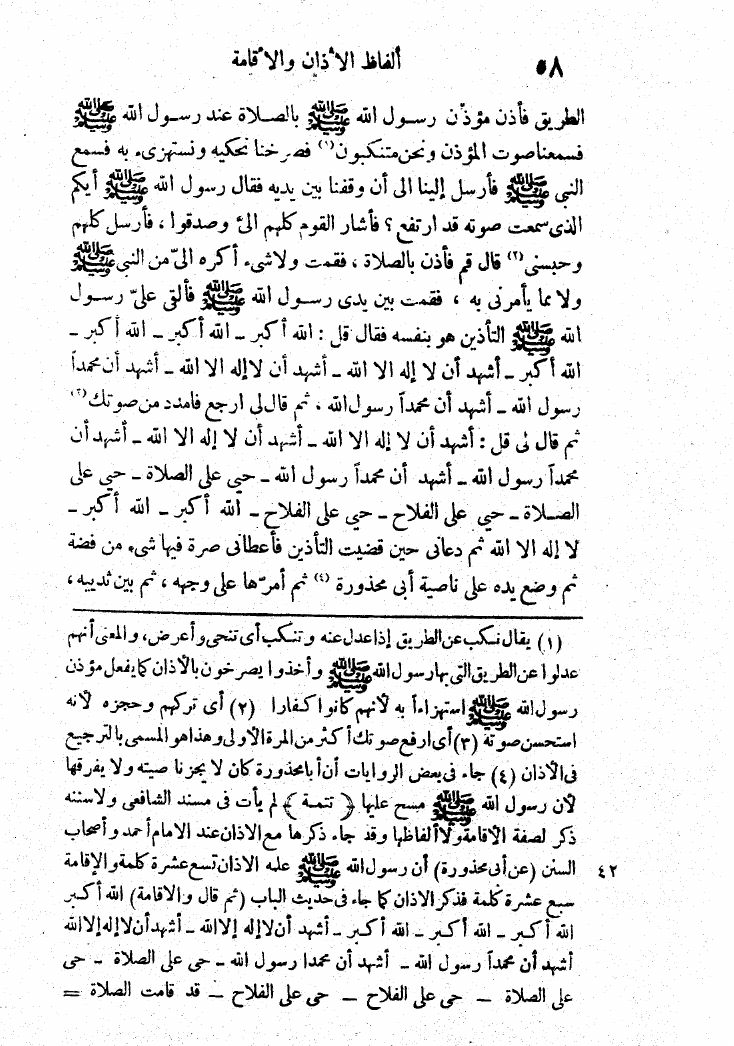 ٥٨ ألفاظ الأذان والاقامة
الطريق فأذن مؤذن رسول الله ﷺ بالصلاة عند رسول الله ﷺ
فسمعنا صوت المؤذن ونحن متنكبون (١) فصرخنا نحكيه ونستهزىء به فسمع
النبي ﷺ فأرسل إلينا الى أن وقفنا بين يديه فقال رسول الله ﷺ أيكم
الذى سمعت صوته قد ارتفع؟ فأشار القوم كلهم الىّ وصدقوا ، فأرسل كلهم
وحبسنى (٢) قال قم فأذن بالصلاة ، فقمت ولا شىء أكره الىّ من النبى ﷺ
ولا مما يأمرنى به ، فقمت بين يدى رسول الله ﷺ فألقى علىّ رسول
الله ﷺ التأذين هو بنفسه فقال قل : الله أكبر ـ الله أكبر ـ الله أكبر ـ
الله أكبر ـ أشهد أن لا إله الا الله ـ أشهد أن لا إله الا الله ـ أشهد أن محمداً
رسول الله ـ أشهد أن محمداً رسول الله ، ثم قال لى ارجع فامدد من صوتك (٣)
ثم قال لى قل : أشهد أن لا إله الا الله ـ أشهد أن لا إله الا الله ـ أشهد أن
محمداً رسول الله ـ أشهد أن محمداً رسول الله ـ حى على الصلاة ـ حى على
الصلاة ـ حى على الفلاح ـ حى على الفلاح ـ الله أكبر ـ الله أكبر ـ
لا إله الا الله ثم دعانى حين قضيت التأذين فأعطانى صرة فيها شىء من فضة
ثم وضع يده على ناصية أبى محذورة (٤) ثم أمرّها على وجهه ، ثم بين ثدييه ،
(١) يقال نكب عن الطريق إذا عدل عنه وتنكب أى تنحى وأعرض، والمعنى أنهم
عدلوا عن الطريق التى بها رسول الله ﷺ وأخذوا يصرخون بالأذان كما يفعل مؤذن
رسول الله ﷺ استهزاءاً به لأنهم كانوا كفارا (٢) أى تركهم وحجزه لأنه
استحسن صوته (٣) أى ارفع صوتك أكثر من المرة الاولى وهذا هو المسمى بالترجيع
فى الأذان (٤) جاء فى بعض الروايات أن أبا محذورة كان لا يجز ناصيته ولا يفرقها
لأن رسول الله ﷺ مسح عليها ﴿ تتمة ﴾ لم يأت فى مسند الشافعى ولا سننه
ذكر لصفة الاقامة ولا ألفاظها وقد جاء ذكرها مع الاذان عند الامام أحمد وأصحاب
السنن (عن أبى محذورة) أن رسول الله ﷺ علمه الاذان تسع عشرة كلمة والإقامة ٤٢
سبع عشرة كلمة فذكر الاذان كما جاء فى حديث الباب (ثم قال والاقامة) الله أكبر
الله أكبر ـ الله أكبر ـ الله أكبر ـ أشهد أن لا إله إلا الله ـ أشهد أن لا إله إلا الله
أشهد أن محمداً رسول الله ـ أشهد أن محمدا رسول الله ـ حى على الصلاة ـ حى
على الصلاة ـ حى على الفلاح ـ حى على الفلاح ـ قد قامت الصلاة =